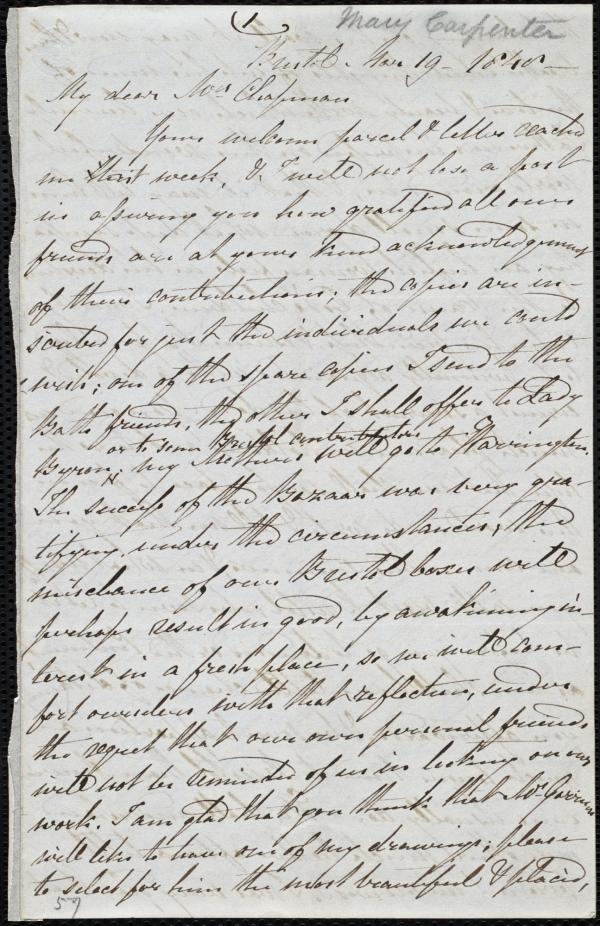 (1)
Mary Carpenter
Bristol. Mar 19 - 1848 -
My dear Mrs Chapman
Your welcome parcel & letter reached
me last week, & I will not lose a post
in assuring you how gratified all our
friends are at your kind acknowledgement
of their contributions; the copies are in-
scribed for just the individuals we could
wish; one of the spare copies I send to the
Bath friends, the other I shall offer to Lady
or to some Bristol contributors
Byron; my Mother's will go to Warrington.
The success of the Bazaar was very gra-
tifying, under the circumstances; the
mischance of our Bristol boxes will
perhaps result in good, by awakening in-
terest in a fresh place, so we will com-
fort ourselves with that reflection, under
the regret that our own personal friends
will not be reminded of us in looking on our
work. I am glad that you think that Mr Garrison
will like to have one of my drawings; please
to select for him the most beautiful & placid,
57